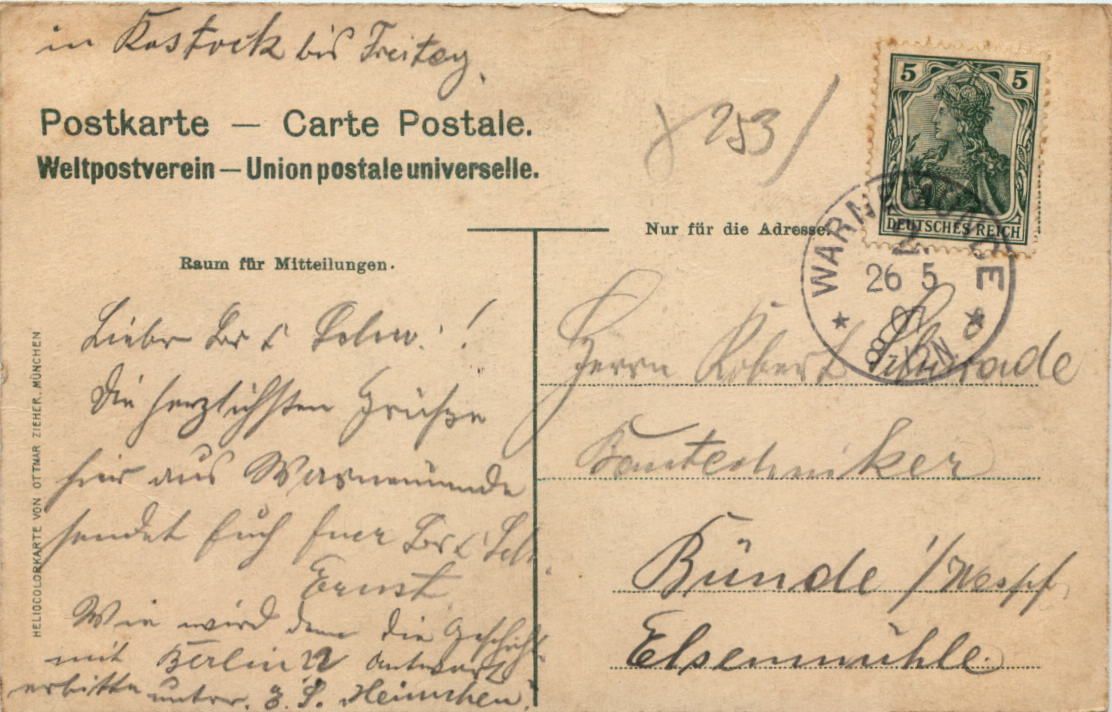 in Rostock bis Freitag
Postkarte — Carte Postale.
Weltpostverein — Union postale universelle.
253
5 5
DEUTSCHES REICH
WARNEMÜNDE
26 5
07
8-12 N
Nur für die Adresse.
Raum für Mitteilungen.
Lieber Br &
Die herzlichsten Grüße
hier aus Warnemünde
sendet Euch Euer Br &
Ernst
Wie wird denn die Geschicht
mit Berlin Antwort
erbitte unter
Herrn Robert Schwade
Bautechniker
Bünde i/Westf.
Elsenmühle.
HELIOCOLORKARTE VON OTTMAR ZIEHER, MÜNCHEN